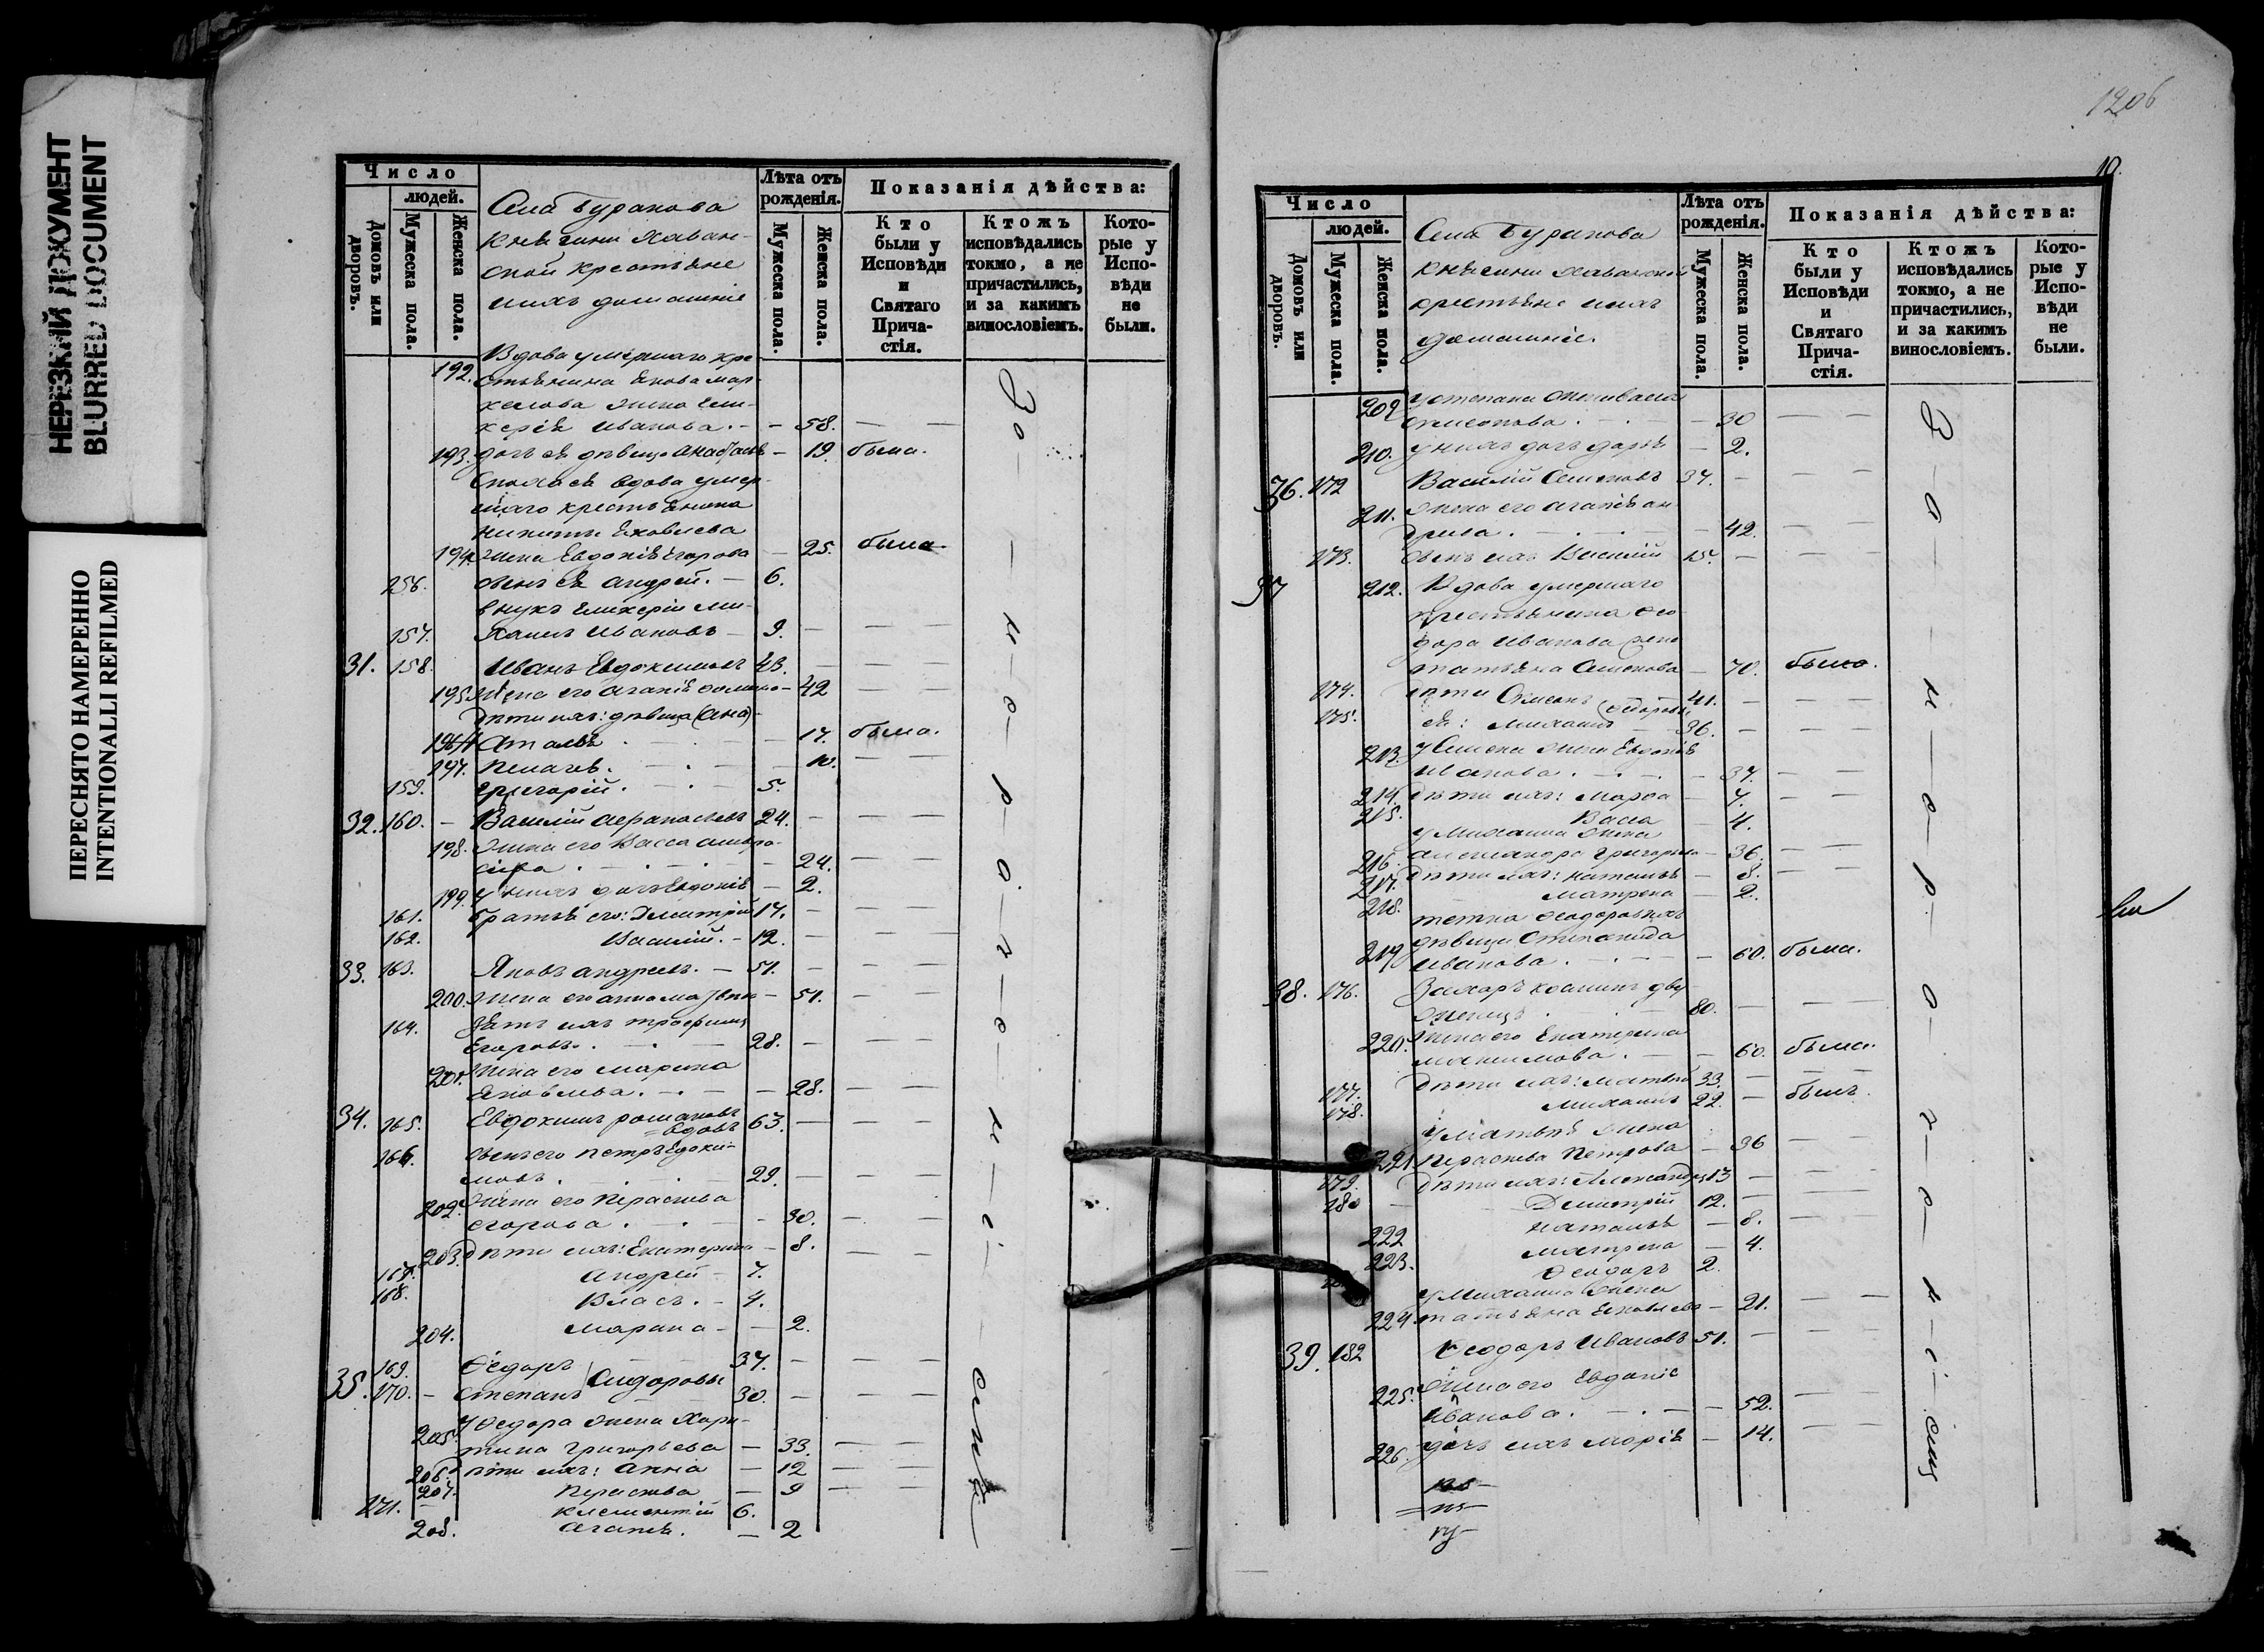 НЕРЕЗКИЙ ДОКУМЕНТ
BLURRED DOCUMENT
ПЕРЕСНЯТО НАМЕРЕННО
INTENTIONALLI REFILMED
Число
людей.
Домовъ или дворовъ.
Мужеска пола.
Женска пола.
Села Буракова
Княгини Хаван-
ской крестьяне
ихъ домашніе
Лѣта отъ рожденія.
Мужеска пола.
Женска пола.
Показанія дѣйства:
Кто были у Исповѣди и Святаго Причастія.
Ктожъ исповѣдались токмо, а не причастились, и за какимъ винословіемъ.
Которые у Исповѣди не были.
Вдова умершаго кре
192. стьянина Якова Мар-
келова жена Гли-
керія Иванова. — 58. — —
193. дочь ея дѣвица — 19. была.
Сноха ея вдова умер-
шаго крестьянина
Никиты Яковлева
194 жена Евдокія Егорова — 25. была.
156. сынъ ея Андрей. — 6.
внукъ Гликеріи Ми-
157. хаилъ Ивановъ — 9. — — —
31. 158. Иванъ Евдокимовъ 43. — — —
195 жена его Агапія — 42 — —
Дѣти ихъ: дѣвица
196 — 17. была.
197. Пелагея. — 10. — —
159. Григорій. — 5.
32. 160. — Василій 24. — — —
198. жена его Васса
— 24. — —
199. у нихъ дочь Евдокія — 2.
161. братья его: Дмитрій 17. — — —
162. Василій. — 12. — — —
33. 163. Яковъ Андреевъ. — 51. — — —
200. жена его Анна — 51. — —
164. Зять ихъ Трофимъ
Егоровъ. — 28. — — —
201. жена его Марина
Яковлева. — 28. — —
34. 165. Евдокимъ Романовъ
вдовъ 63. — — —
166. сынъ его Петръ Евдоки-
мовъ. — 29. — — —
202. жена его Параскева
Егорова. — 30. — —
203. Дѣти ихъ: Екатерина — 8. — —
167. Андрей — 7.
168. Власъ. — 4.
204. Марина — 2.
169. Ѳедоръ 37. — — —
35. 170. — Степанъ Сидоровы 30. — — —
У Ѳедора жена Хари-
205. тина Григорьева — 33. — —
206. Дѣти ихъ: Анна — 12 — —
207. Параскева — 9 — —
171. Климентій 6.
208. Агапія. — 2
За — не — ра — де — ні — емъ
1206
10.
Число
людей.
Домовъ или дворовъ.
Мужеска пола.
Женска пола.
Села Буракова
Княгини Хаванской
крестьяне ихъ
домашніе.
Лѣта отъ рожденія.
Мужеска пола.
Женска пола.
Показанія дѣйства:
Кто были у Исповѣди и Святаго Причастія.
Ктожъ исповѣдались токмо, а не причастились, и за какимъ винословіемъ.
Которые у Исповѣди не были.
209 у Степана жена
— 30 — —
210. у нихъ дочь Дарья — 2.
36. 172 Василій Семеновъ 37. — — —
211. жена его Агапія Ан-
— 42. — —
173. сынъ ихъ Василій 15. — — —
37 212. Вдова умершаго
крестьянина Ѳео-
дора Иванова жена
Татьяна Семенова — 70. была.
174. дѣти Семенъ 41. — — —
175. ея: Михаилъ Ѳедоровы 36. — — —
213. у Семена жена Евдокія
Иванова. — 37. — —
214. Дѣти ихъ: Марѳа — 7. — —
215. Васса — 4.
у Михаила жена
216. Александра Григорьева — 36. — —
217. Дѣти ихъ: Наталья — 8. — —
218. Матрена — 2.
тетка Ѳеодоровыхъ
дѣвица Степанида
219 Иванова. — 60. была.
38. 176. Захаръ
80. — — —
220. жена его Екатерина
Максимова. — 60. была.
177. Дѣти ихъ: Матвѣй 33. — — —
178. Михаилъ 22. — былъ.
у Матвѣя жена
221 Параскева Петрова — 36 — —
179. Дѣти ихъ: Александръ 13 — — —
180 Димитрій 12. — — —
222 Наталья — 8. — —
223. Матрена — 4.
Ѳеодоръ 2.
у Михаила жена
224. Татьяна Яковлева — 21. — —
39. 182 Ѳеодоръ Ивановъ 51. — — —
225. жена его Евдокія
Иванова. — 52. — —
226. дочь ихъ Марія — 14. — —